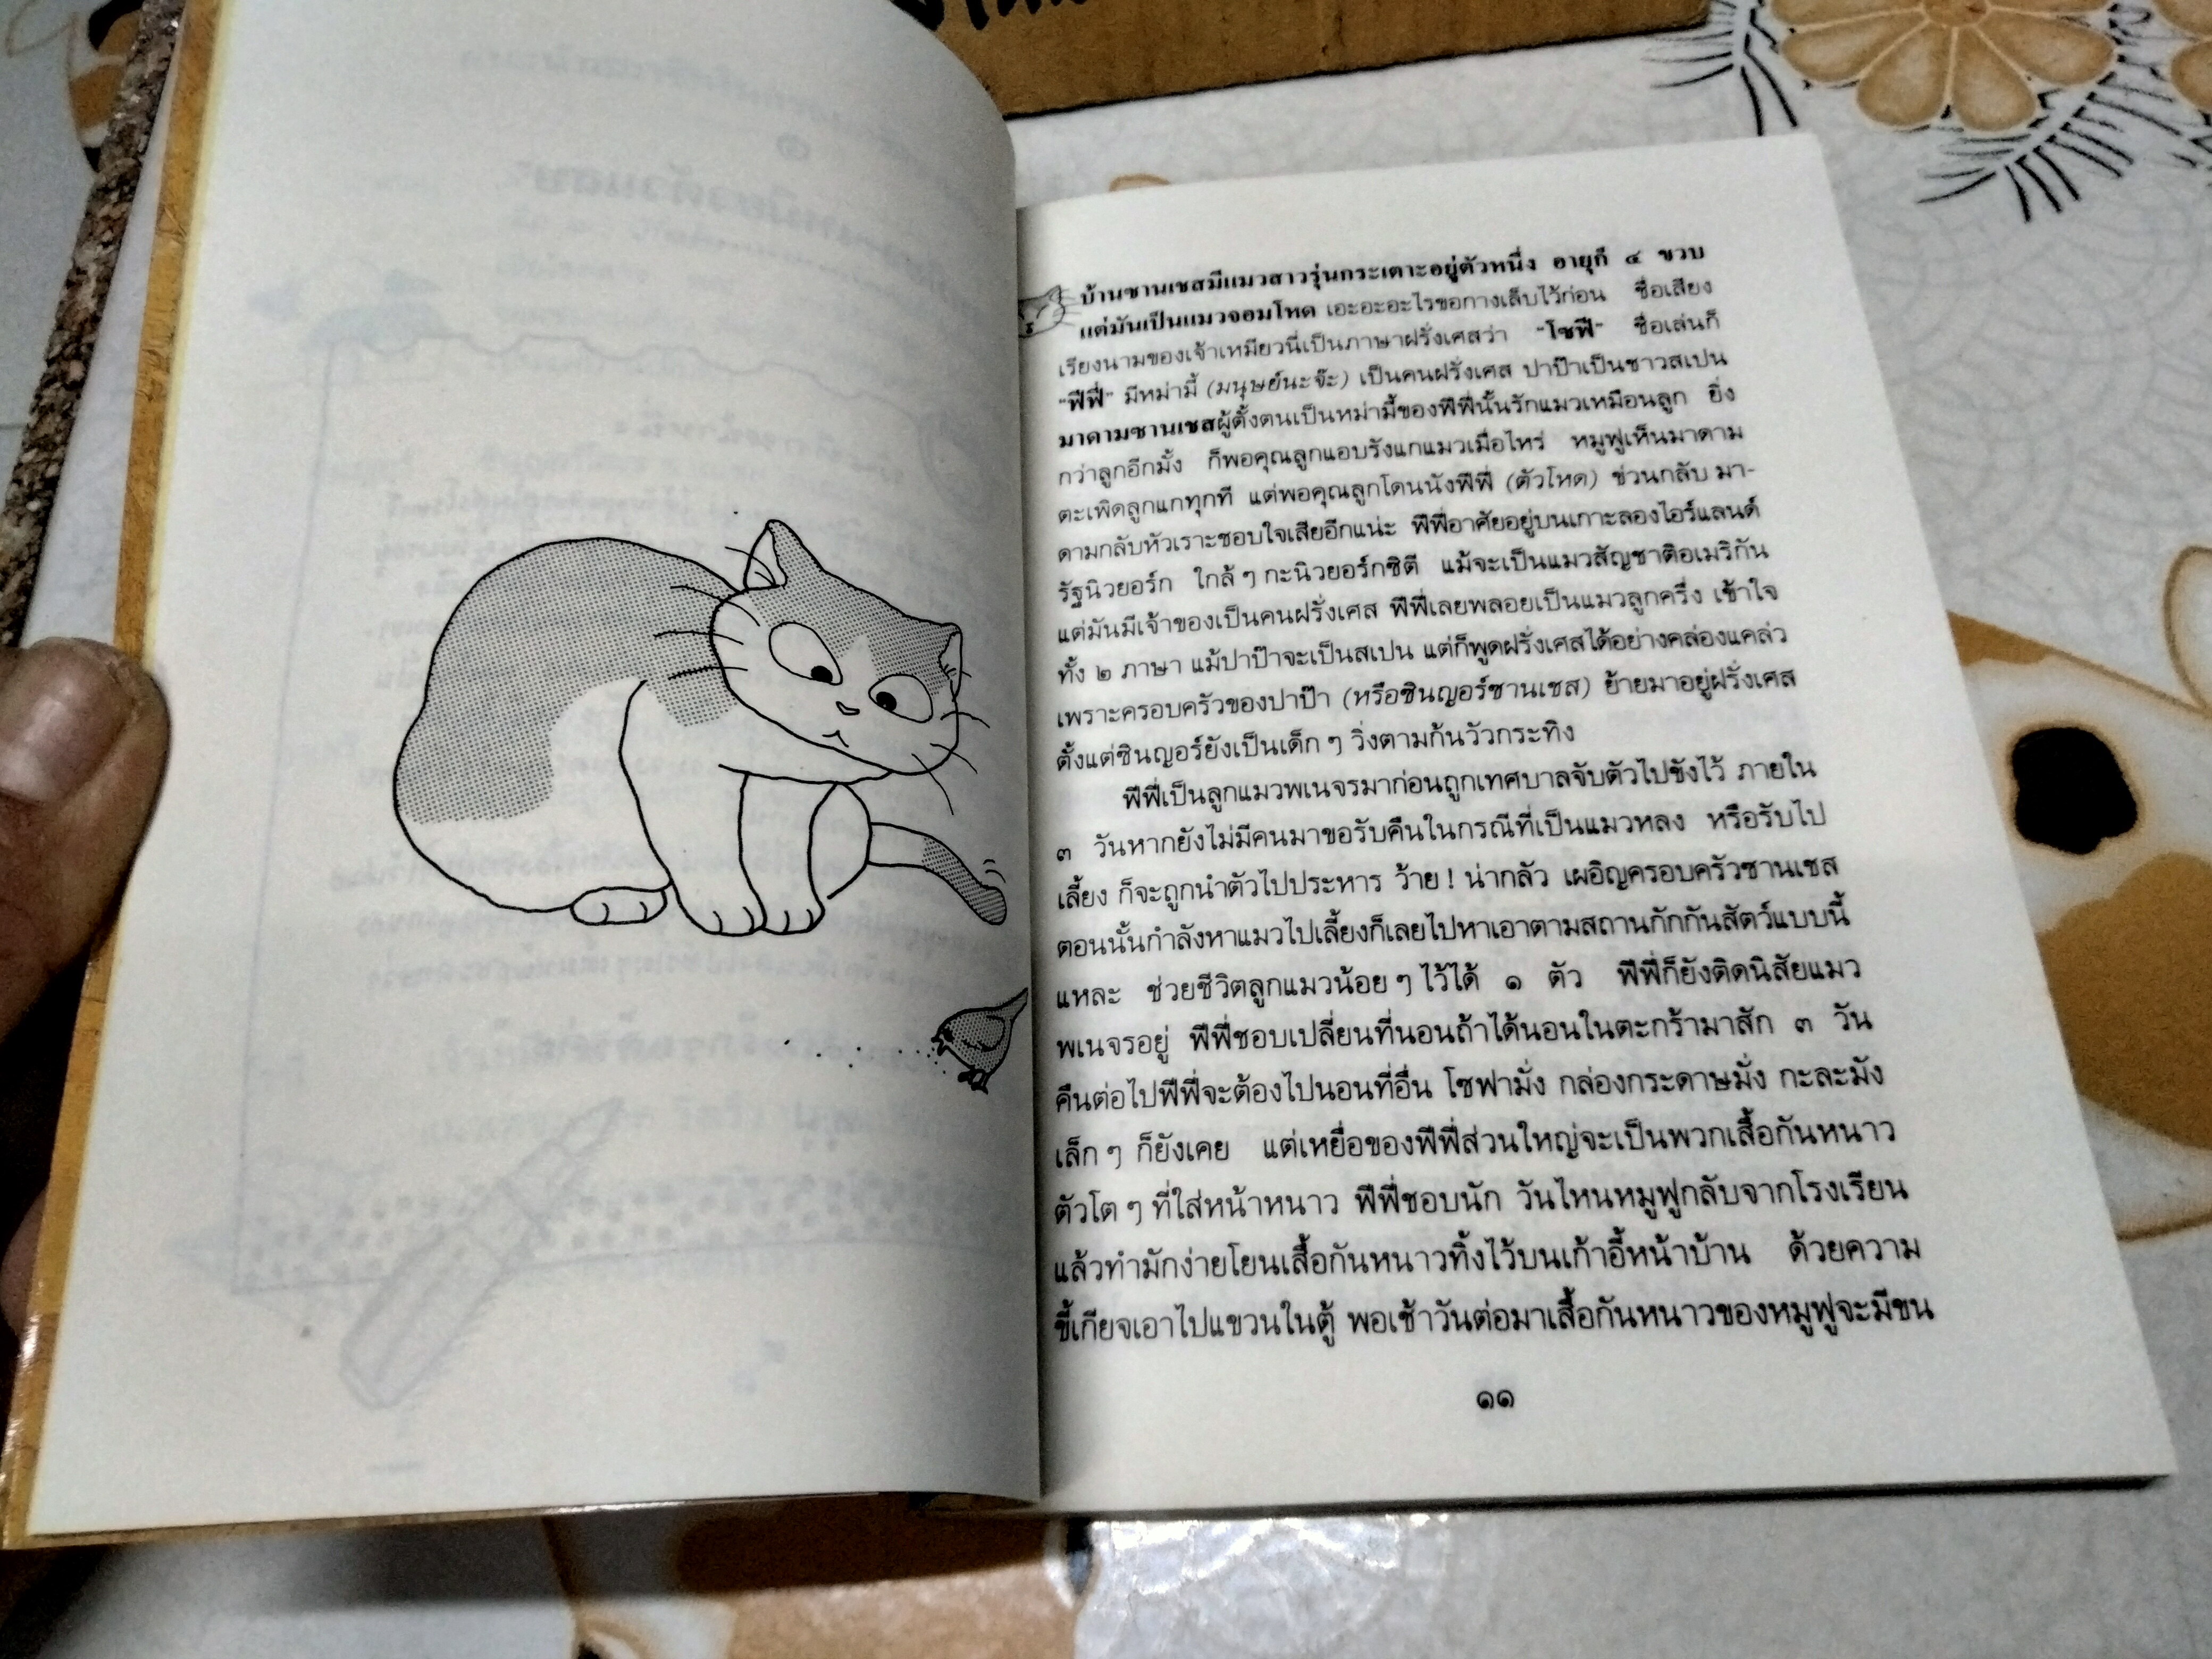 บ้านซานเชสมีแมวสาวรุ่นกระเตาะอยู่ตัวหนึ่ง อายุก็ ๔ ขวบ
แต่มันเป็นแมวจอมโหด เอะอะอะไรขอกางเล็บไว้ก่อน ชื่อเสียง
เรียงนามของเจ้าเหมียวนี่เป็นภาษาฝรั่งเศสว่า "โซฟี" ชื่อเล่นก็
"ฟีฟี่" มีหม่ามี้ (มนุษย์นะจ๊ะ) เป็นคนฝรั่งเศส ปาป๊าเป็นชาวสเปน
มาดามซานเชสผู้ตั้งตนเป็นหม่ามี้ของฟีฟี่นั้นรักแมวเหมือนลูก ยิ่ง
กว่าลูกอีกมั้ง ก็พอคุณลูกแอบรังแกแมวเมื่อไหร่ หมูฟูเห็นมาดาม
ตะเพิดลูกแกทุกที แต่พอคุณลูกโดนนังฟีฟี่ (ตัวโหด) ข่วนกลับ มา-
ดามกลับหัวเราะชอบใจเสียอีกแน่ะ ฟีฟี่อาศัยอยู่บนเกาะลองไอร์แลนด์
รัฐนิวยอร์ก ใกล้ๆ กะนิวยอร์กซิตี แม้จะเป็นแมวสัญชาติอเมริกัน
แต่มันมีเจ้าของเป็นคนฝรั่งเศส ฟีฟี่เลยพลอยเป็นแมวลูกครึ่ง เข้าใจ
ทั้ง ๒ ภาษา แม้ปาป๊าจะเป็นสเปน แต่ก็พูดฝรั่งเศสได้อย่างคล่องแคล่ว
เพราะครอบครัวของปาป๊า (หรือซินญอร์ซานเชส) ย้ายมาอยู่ฝรั่งเศส
ตั้งแต่ซินญอร์ยังเป็นเด็กๆ วิ่งตามก้นวัวกระทิง
ฟีฟี่เป็นลูกแมวพเนจรมาก่อนถูกเทศบาลจับตัวไปขังไว้ ภายใน
๓ วันหากยังไม่มีคนมาขอรับคืนในกรณีที่เป็นแมวหลง หรือรับไป
เลี้ยง ก็จะถูกนำตัวไปประหาร ว้าย! น่ากลัว เผอิญครอบครัวซานเชส
ตอนนั้นกำลังหาแมวไปเลี้ยงก็เลยไปหาเอาตามสถานกักกันสัตว์แบบนี้
แหละ ช่วยชีวิตลูกแมวน้อยๆ ไว้ได้ ๑ ตัว ฟีฟี่ก็ยังติดนิสัยแมว
พเนจรอยู่ ฟีฟี่ชอบเปลี่ยนที่นอนถ้าได้นอนในตะกร้ามาสัก ๓ วัน
คืนต่อไปฟีฟี่จะต้องไปนอนที่อื่น โซฟามั่ง กล่องกระดาษมั่ง กะละมัง
เล็กๆ ก็ยังเคย แต่เหยื่อของฟีฟี่ส่วนใหญ่จะเป็นพวกเสื้อกันหนาว
ตัวโตๆ ที่ใส่หน้าหนาว ฟีฟี่ชอบนัก วันไหนหมูฟูกลับจากโรงเรียน
แล้วทำมักง่ายโยนเสื้อกันหนาวทิ้งไว้บนเก้าอี้หน้าบ้าน ด้วยความ
ขี้เกียจเอาไปแขวนในตู้ พอเช้าวันต่อมาเสื้อกันหนาวของหมูฟูจะมีขน
๑๑